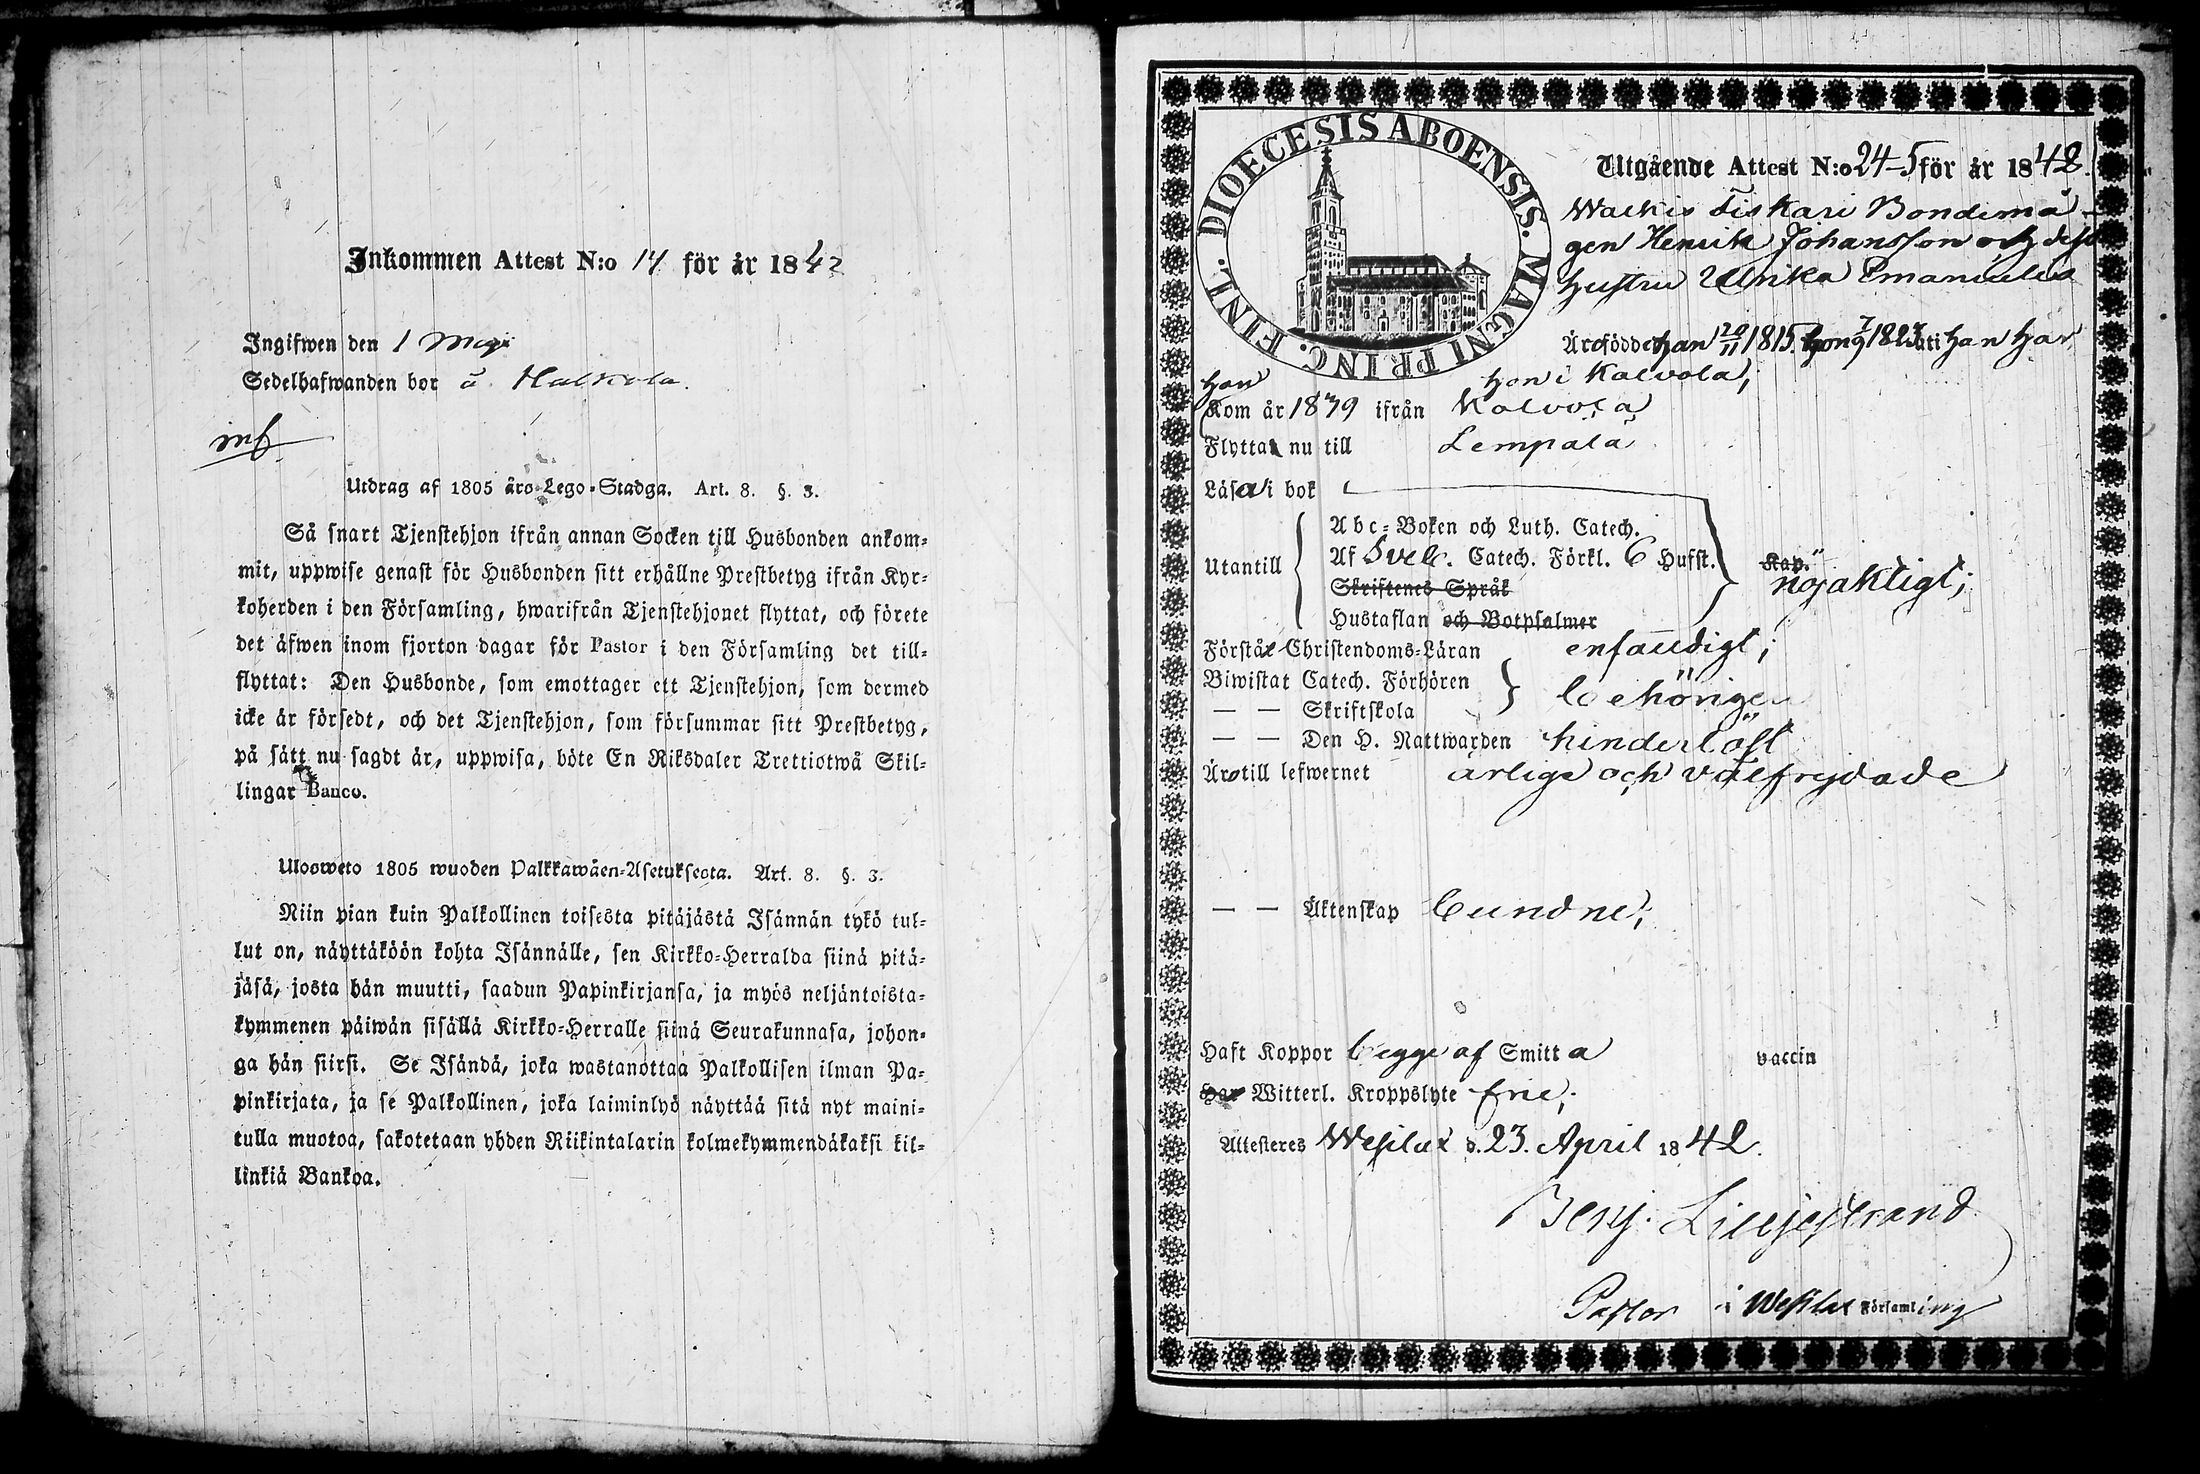 Inkommen Attest N:o 14 för år 1842
Ingifwen den 1 Maji
Sedelhafwanden bor å Halkola.
inf
Utdrag af 1805 års Lego-Stadga. Art. 8. §. 3.
Så snart Tjenstehjon ifrån annan Socken till Husbonden ankom-
mit, uppwise genast för Husbonden sitt erhållne Prestbetyg ifrån Kyr-
koherden i den Församling, hwarifrån Tjenstehjonet flyttat, och förete
det äfwen inom fjorton dagar för Pastor i den Församling det till-
flyttat: Den Husbonde, som emottager ett Tjenstehjon, som dermed
icke är försedt, och det Tjenstehjon, som försummar sitt Prestbetyg,
på sätt nu sagdt är, uppwisa, böte En Riksdaler Trettiotwå Skil-
lingar Banco.
Ulosweto 1805 wuoden Palkkawäen-Asetuksesta. Art. 8. §. 3.
Niin pian kuin Palkollinen toisesta pitäjästä Isännän tykö tul-
lut on, näyttäköön kohta Isännälle, sen Kirkko-Herralda siinä pitä-
jäsä, josta hän muutti, saadun Papinkirjansa, ja myös neljäntoista-
kymmenen päiwän sisällä Kirkko-Herralle siinä Seurakunnasa, johon-
ga hän siirsi. Se Isändä, joka wastanottaa Palkollisen ilman Pa-
pinkirjata, ja se Palkollinen, joka laiminlyö näyttää sitä nyt maini-
tulla muotoa, sakotetaan yhden Riikintalarin kolmekymmendäkaksi kil-
linkiä Bankoa.
DIOECESIS ABOENSIS. MAGNI PRINC. FINL.
Utgående Attest N:o 24-5 för år 1842.
Bondemå-
gen Henrik Johansson och dess
hustru Ulrika Emanuelsd
Äro födde han 20/11 1815. hon 7/9 1823. uti han här
hon i Kalvola;
han
Kom år 1839 ifrån Kalvola
Flytta nu till Lempälä
Läsa i bok
Abc-Boken och Luth. Catech.
Utantill Af Sveb. Catech. Förkl. 6 Hufst. Kap. nöjaktigt;
Skriftenes Språk
Hustaflan och Botpsalmer
Förstå Christendoms-Läran enfaldigt;
Biwistat Catech. Förhören behörigen
— — Skriftskola
— — Den H. Nattwarden hinderlöst
Äro till lefwernet ärlige och välfrejdade
— — Äktenskap bundne;
Haft Koppor begge af Smitta vaccin
Har Witterl. Kroppslyte frie;
Attesteres Wesilax d. 23. April 1842.
Benj. Liljestrand
Pastor i Wesilax Församling